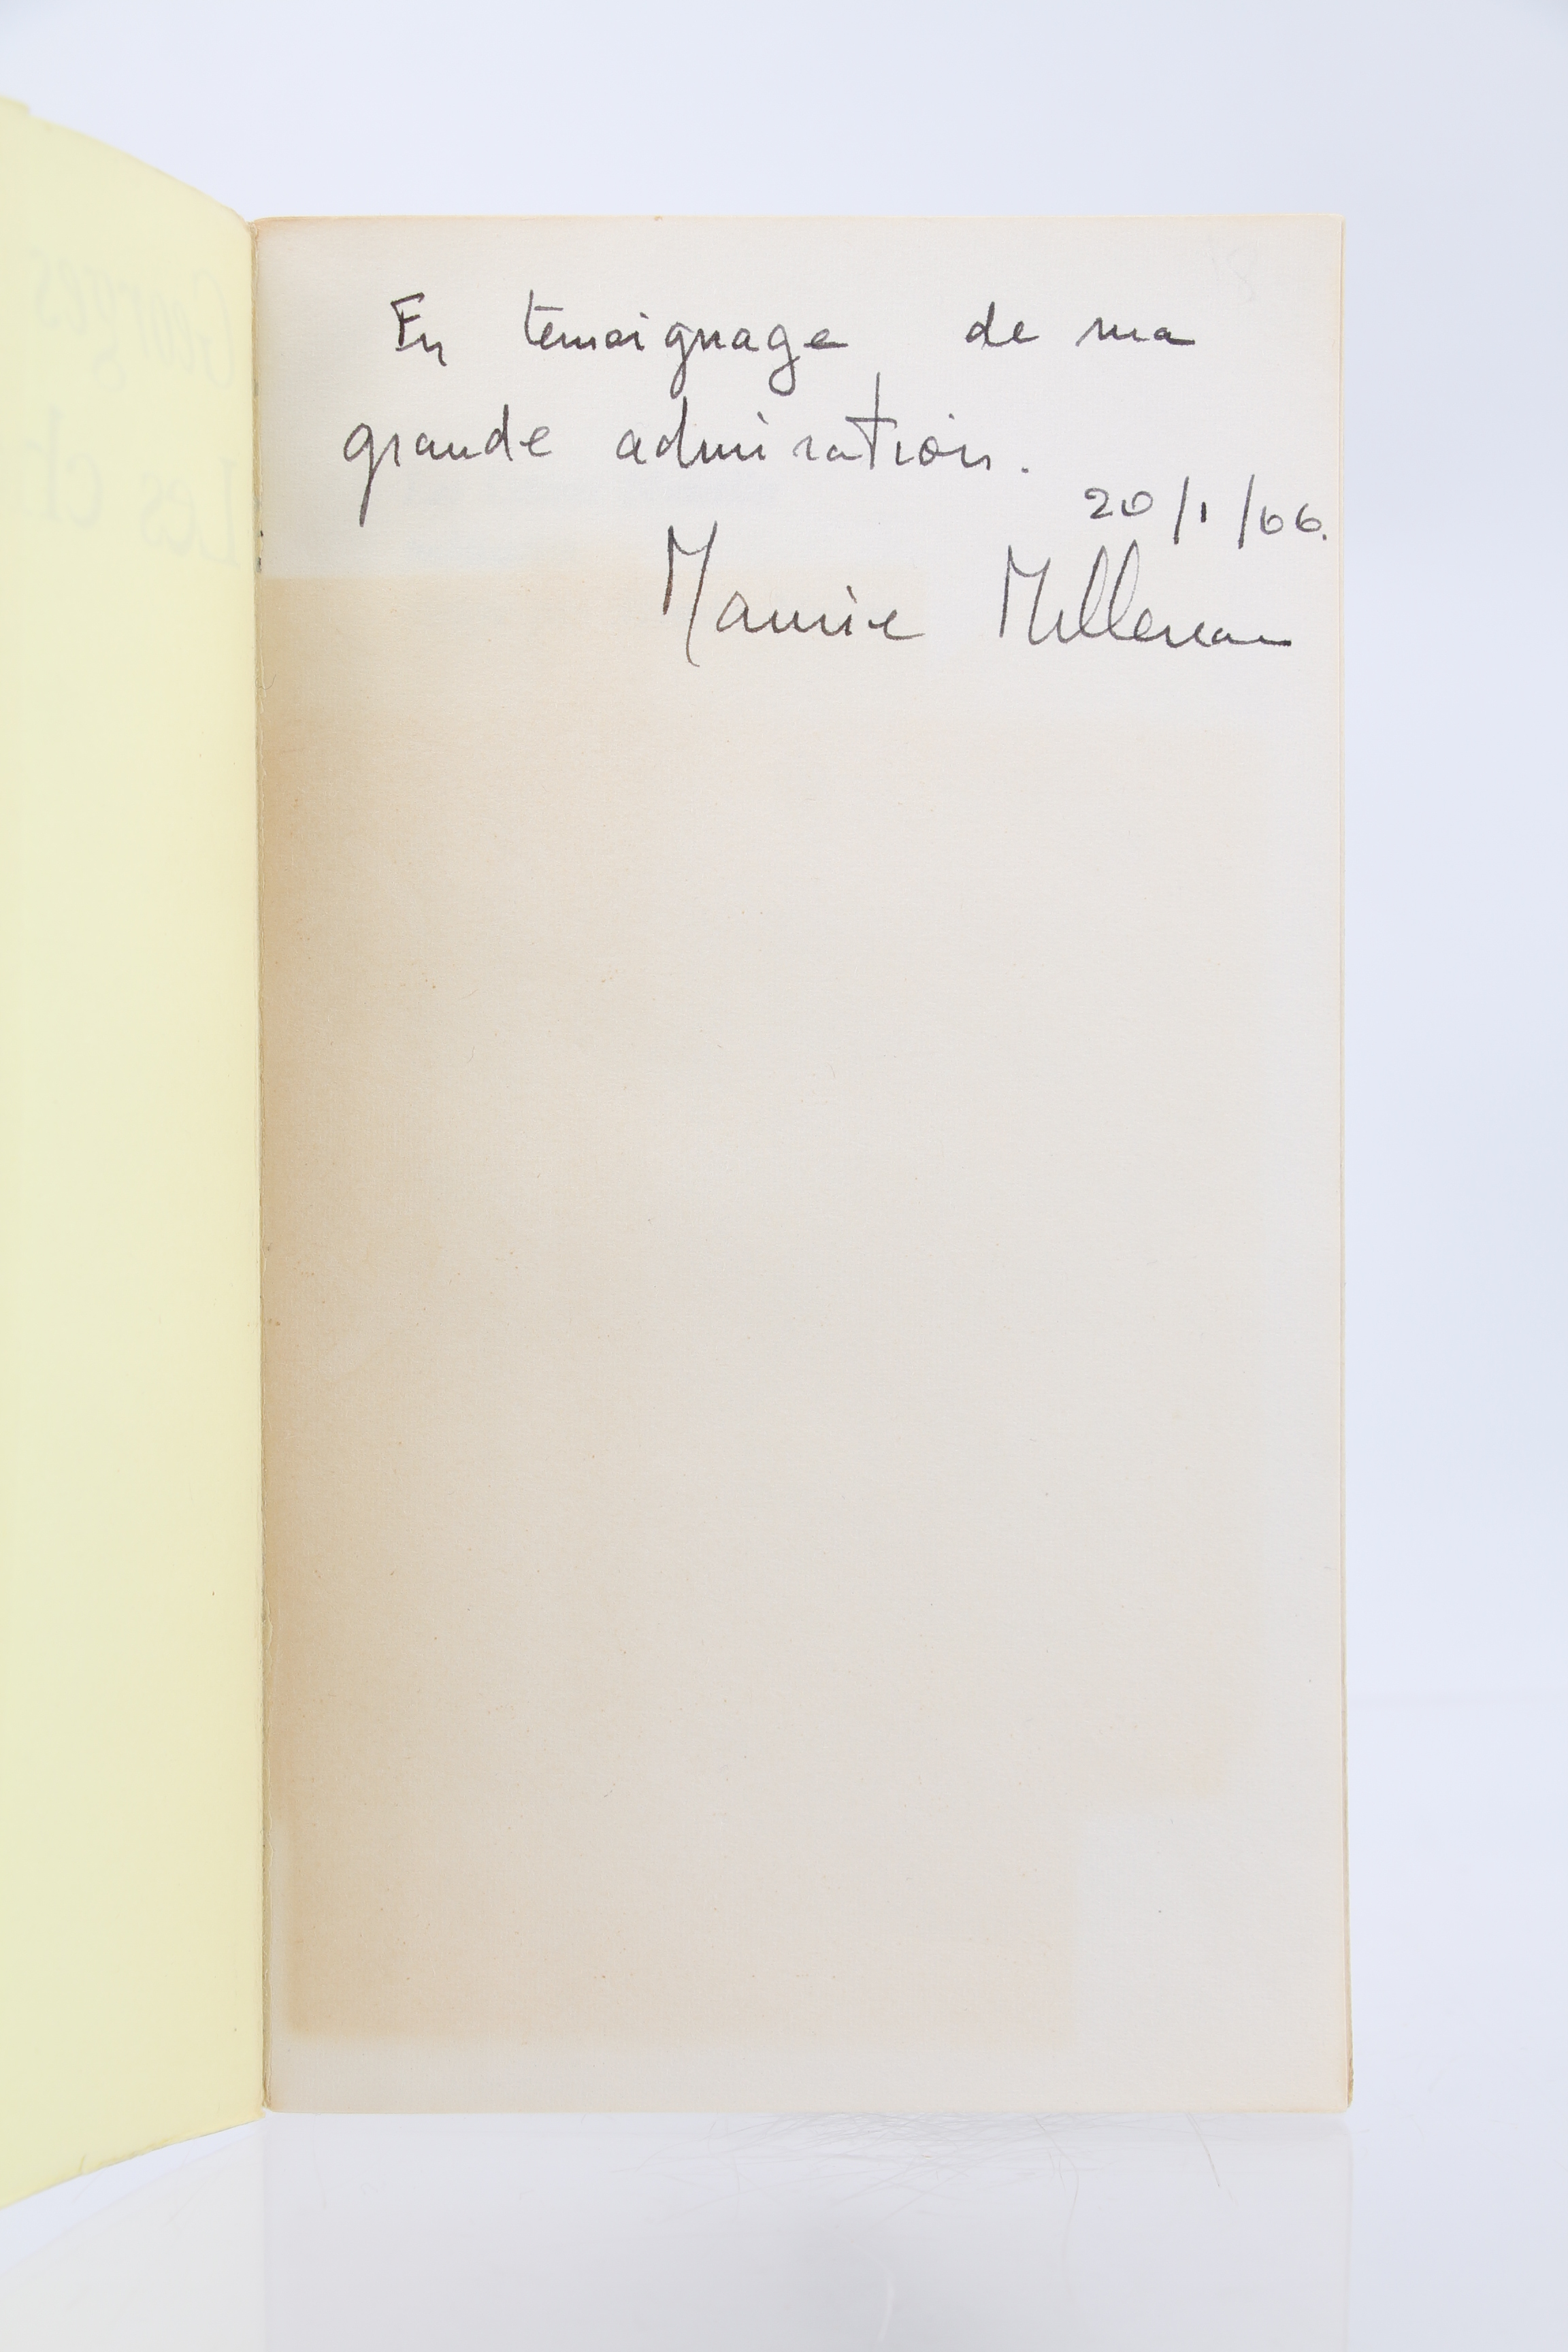 En temoignage de ma
grande admiration.
20/1/66.
Maurice
Georges
Les